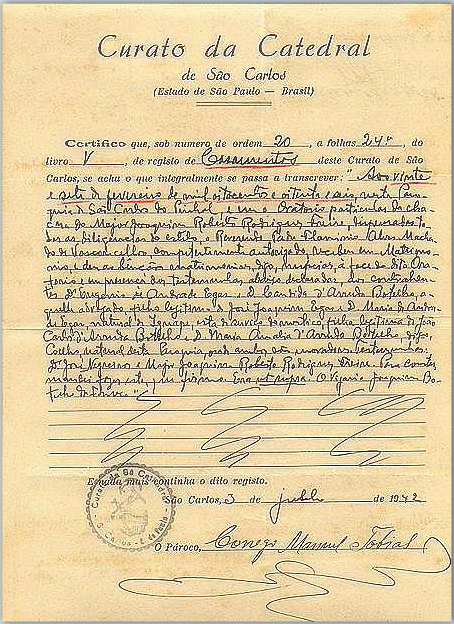 Curato da Catedral
de São Carlos
(Estado de São Paulo — Brasil)
Certifico que, sob numero de ordem 20, a folhas 24v., do
livro V, de registo de Casamentos deste Curato de São
Carlos, se acha o que integralmente se passa a transcrever: "Aos vinte
e sete de fevereiro de mil oitocentos e oitenta e seis, nesta Paro-
quia de São Carlos do Pinhal, e em o Oratorio particular da cha-
cara do Major Joaquim Roberto Rodrigues Freire, dispensadas to-
das as diligencias do estilo, o Reverendo Padre Flaminio Alvares Macha-
do de Vasconcellos, competentemente autorizado, recebeu em Matrimo-
nio, e deu as bênçãos matrimoniais, digo, nupciais, à face do dito Ora-
torio e em presença das testemunhas abaixo declaradas, dos contrahen-
tes Dr Eugenio de Andrade Egas e D. Candida d'Arruda Botelho, a-
quelle advogado, filho legitimo de José Joaquim Egas e D. Maria de Andra-
de Egas, natural de esta de serviço domestico, filha legitima de João
Carlos d'Arruda Botelho e D. Maria Amalia d'Arruda Botelho, digo,
Coelho, natural desta Paroquia, onde ambos são moradores. Testemunhas:
Dr José e Major Joaquim Roberto Rodrigues Freire. Para constar
mandei fazer este, que firmo. Era ut supra. O Vigario Joaquim Bo-
E nada mais continha o dito registo.
São Carlos, 3 de julho de 1942
O Pároco, Conego Manuel Tobias
Curato da Sé Catedral
S. Carlos - E. de S. Paulo